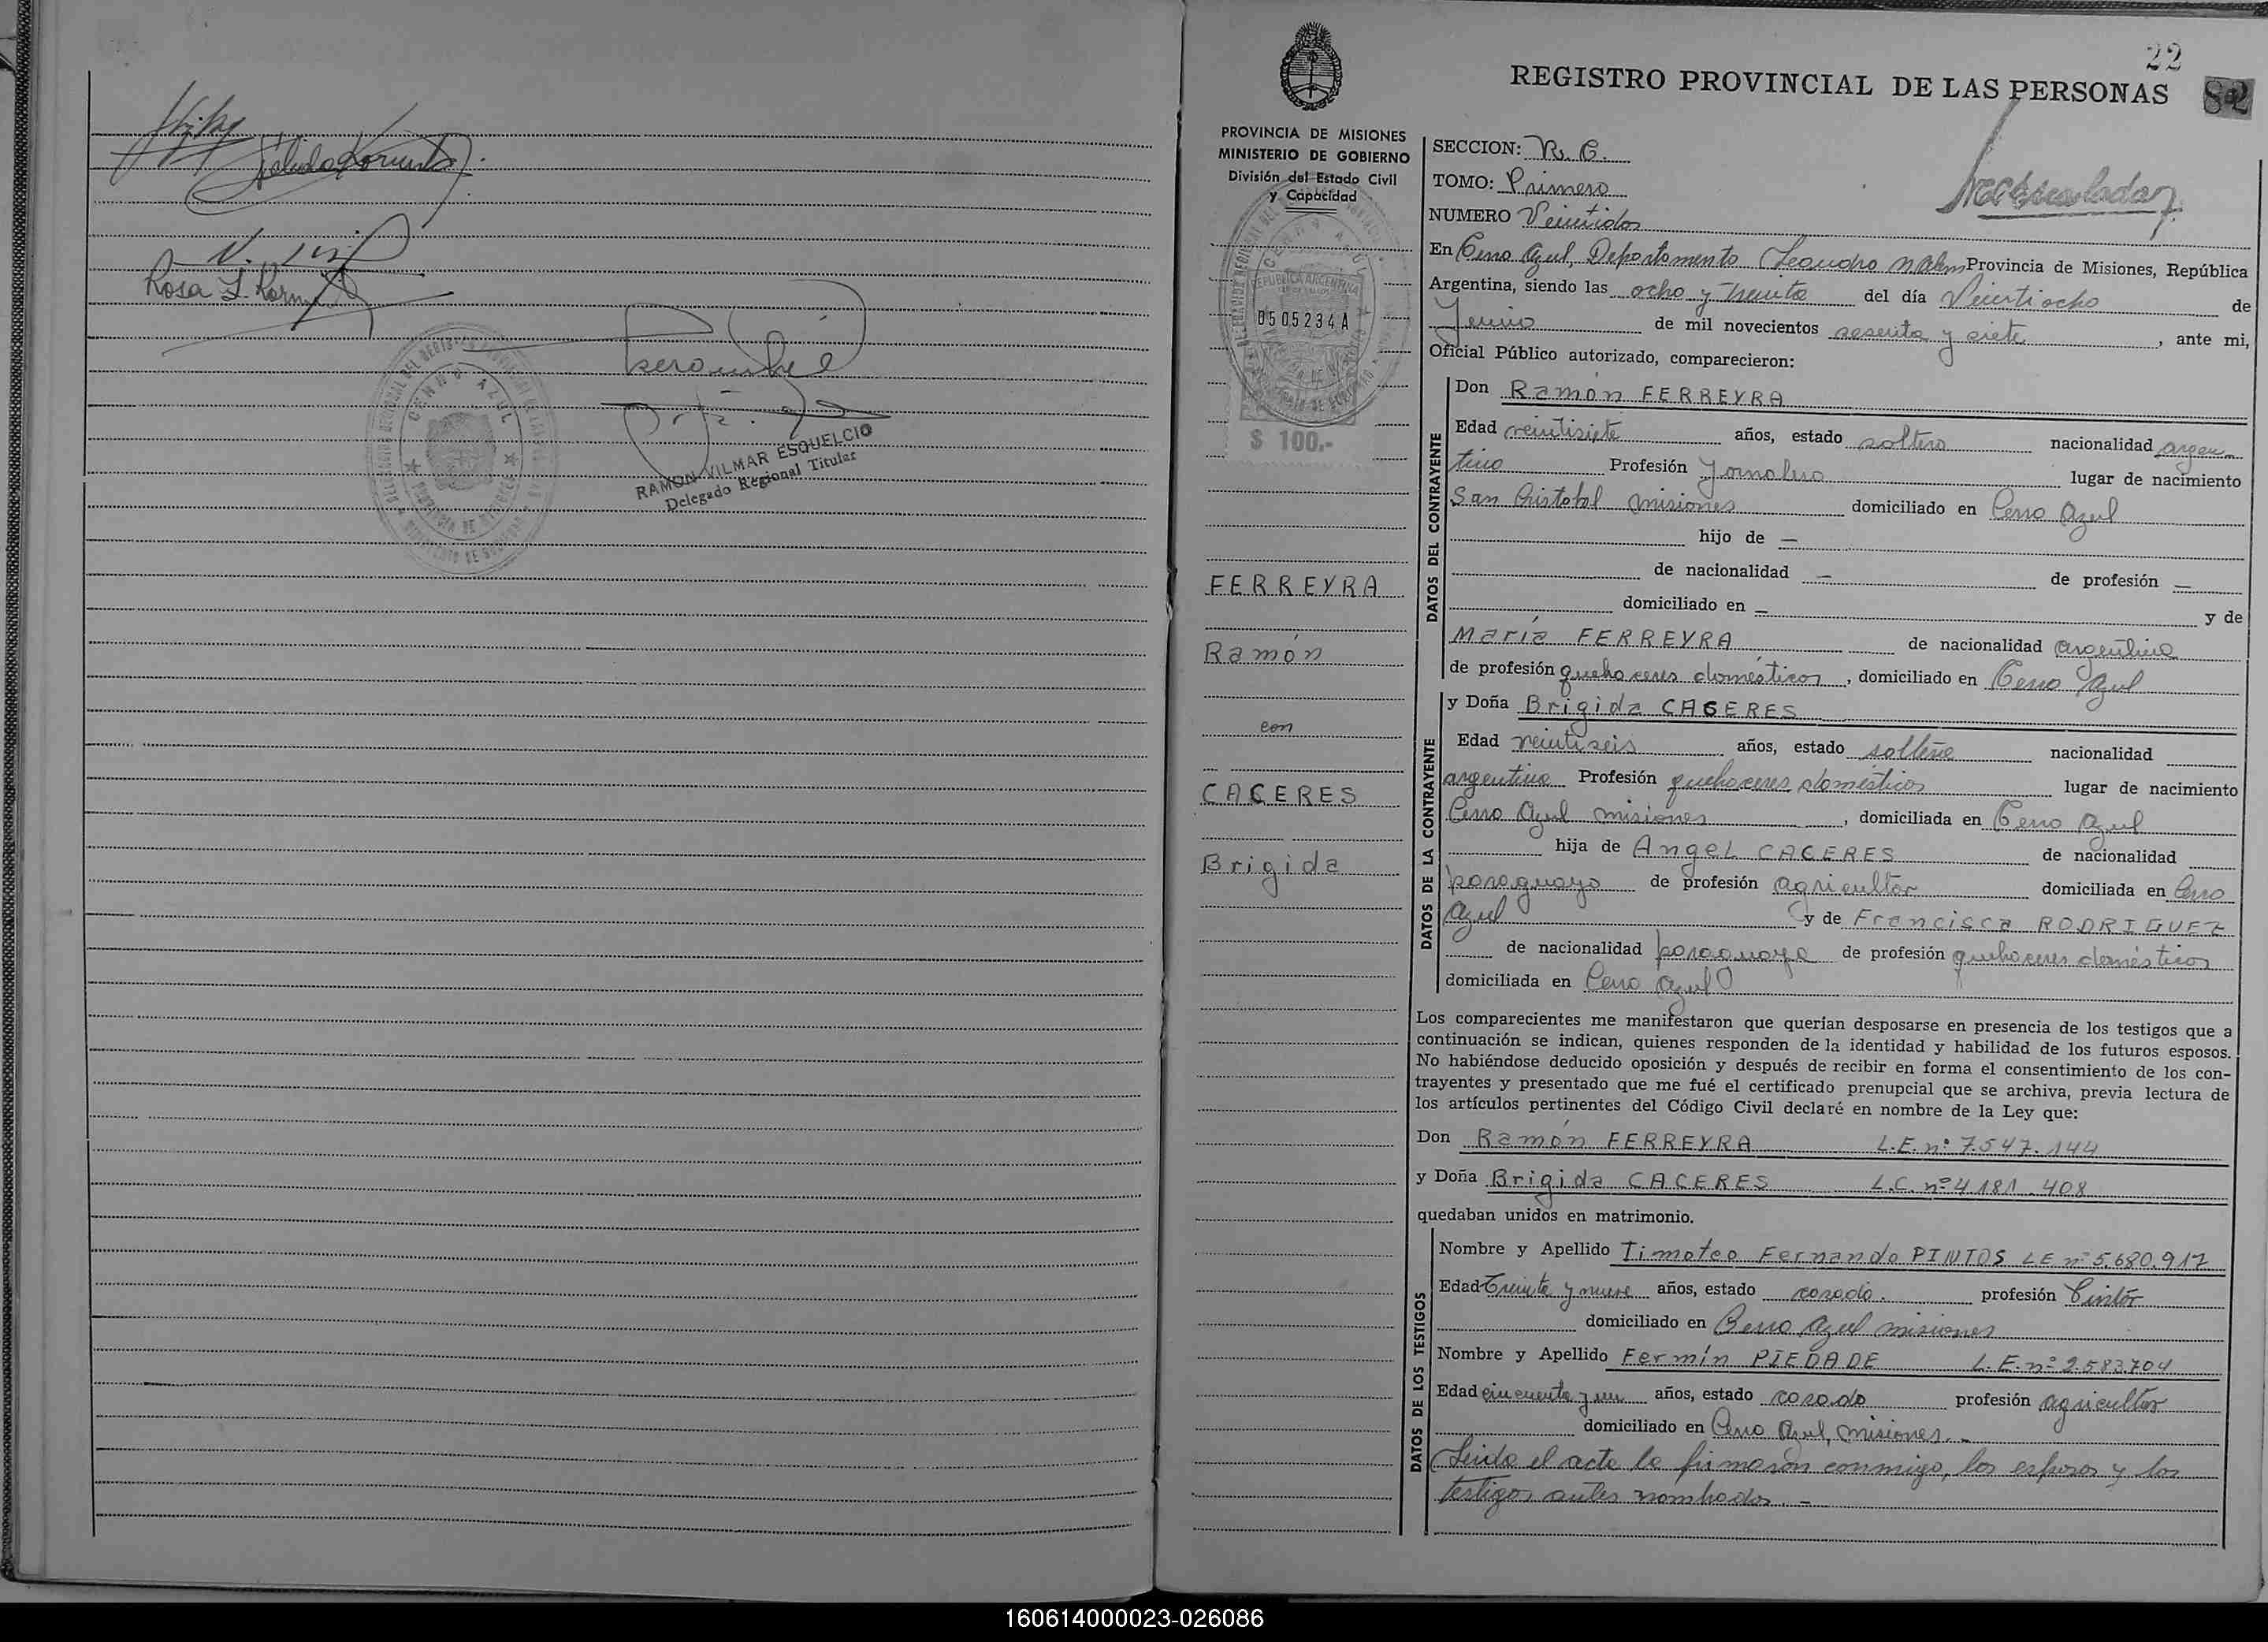 Rosa
CERRO AZUL
RAMON VILMAR ESQUELCIO
Delegado Regional Titular
22
REGISTRO PROVINCIAL DE LAS PERSONAS
82
PROVINCIA DE MISIONES
MINISTERIO DE GOBIERNO
División del Estado Civil
y Capacidad
CERRO AZUL
REPUBLICA ARGENTINA
0505234A
$ 100.-
FERREYRA
Ramón
con
CACERES
Brigida
SECCION:
TOMO: Primero
NUMERO Veintidos
En Cerro Azul, Departamento Leandro N Alem Provincia de Misiones, República
Argentina, siendo las ocho y treinta del día Veintiocho de
Junio de mil novecientos sesenta y siete, ante mi,
Oficial Público autorizado, comparecieron:
DATOS DEL CONTRAYENTE
Don Ramón FERREYRA
Edad veintisiete años, estado soltero nacionalidad argen-
tino Profesión Jornalero lugar de nacimiento
San Cristobal Misiones domiciliado en Cerro Azul
hijo de —
de nacionalidad — de profesión —
domiciliado en — y de
María FERREYRA de nacionalidad argentina
de profesión quehaceres domésticos, domiciliado en Cerro Azul
DATOS DE LA CONTRAYENTE
y Doña Brigida CACERES
Edad veintiseis años, estado soltera nacionalidad
argentina Profesión quehaceres domésticos lugar de nacimiento
Cerro Azul Misiones, domiciliada en Cerro Azul
hija de Angel CACERES de nacionalidad
paraguayo de profesión agricultor domiciliada en Cerro
Azul y de Francisca RODRIGUEZ
de nacionalidad paraguaya de profesión quehaceres domésticos
domiciliada en Cerro Azul
Los comparecientes me manifestaron que querían desposarse en presencia de los testigos que a
continuación se indican, quienes responden de la identidad y habilidad de los futuros esposos.
No habiéndose deducido oposición y después de recibir en forma el consentimiento de los con-
trayentes y presentado que me fué el certificado prenupcial que se archiva, previa lectura de
los artículos pertinentes del Código Civil declaré en nombre de la Ley que:
Don Ramón FERREYRA L.E. nº 7.547.144
y Doña Brigida CACERES L.C. nº 4.181.408
quedaban unidos en matrimonio.
DATOS DE LOS TESTIGOS
Nombre y Apellido Timoteo Fernando PINTOS LE nº 5.680.917
Edad Treinta y nueve años, estado casado. profesión Pintor
domiciliado en Cerro Azul Misiones
Nombre y Apellido Fermín PIEDADE L.E. nº 2.583.704
Edad cincuenta y un años, estado casado profesión agricultor
domiciliado en Cerro Azul, Misiones.-
Leida el acta la firmaron conmigo, los esposos y los
testigos antes nombrados.-
160614000023-026086